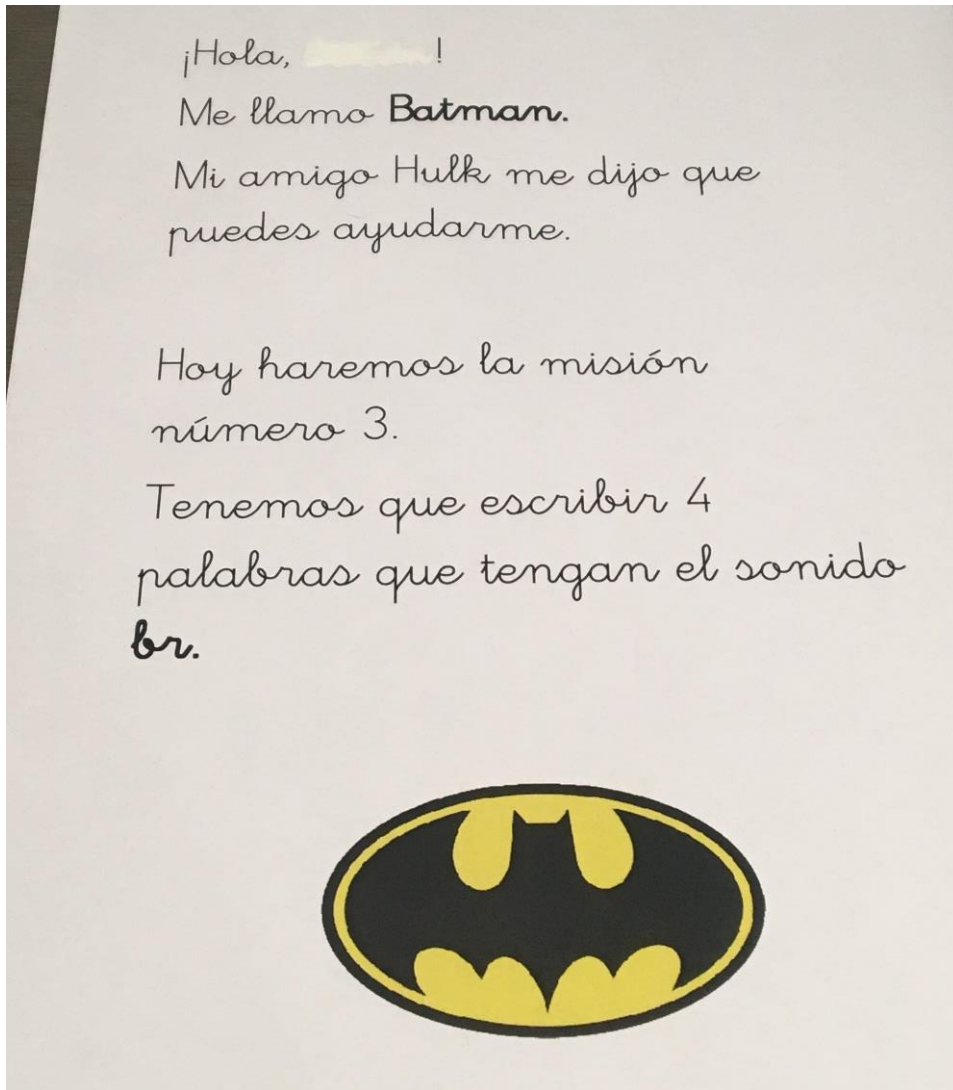 ¡Hola, !
Me llamo Batman.
Mi amigo Hulk me dijo que
puedes ayudarme.
Hoy haremos la misión
número 3.
Tenemos que escribir 4
palabras que tengan el sonido
br.